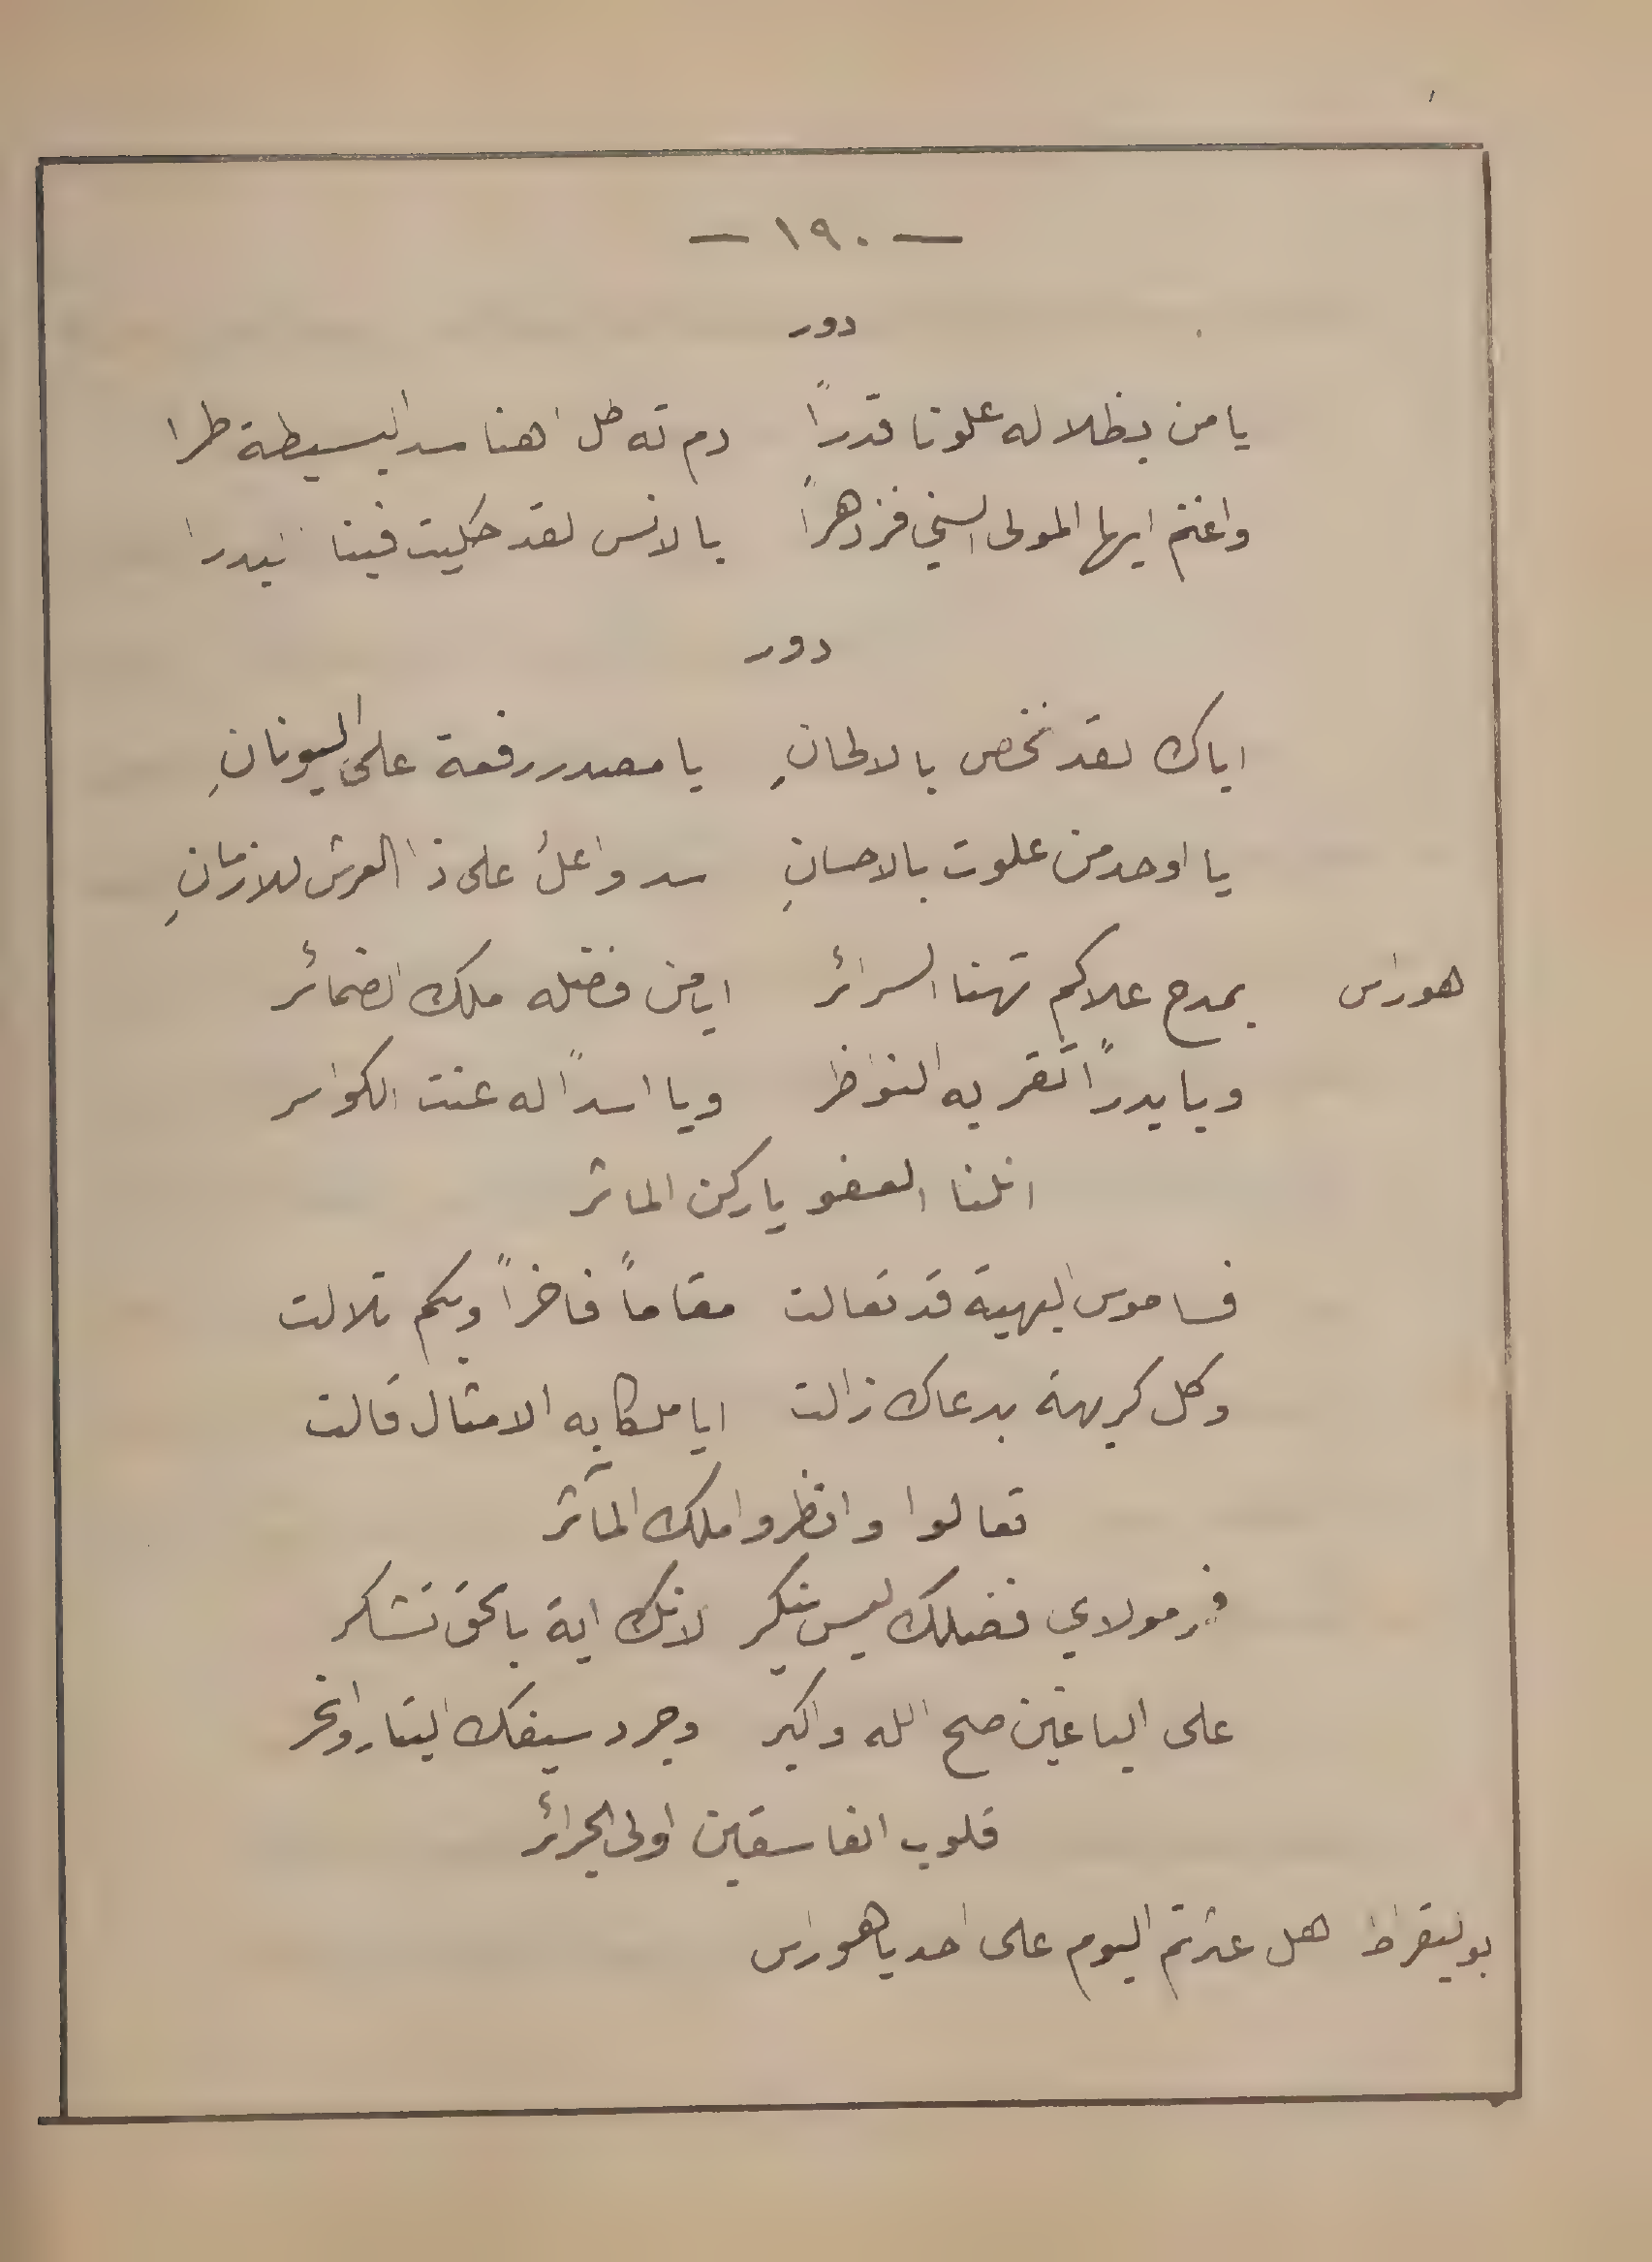 — ١٩٠ —
دور
يا من بظلاله علونا قدراً دم ته طل اهنا سد البسيطة طرا
واغنم ايها المولى السخي فز دهراً بالانس لقد حكيت فينا بدرا
دور
اياك لقد نخص بالالحانِ يا مصدر رفعة على اليونانِ
يا اوحد من علوت بالاحسانِ سد واعلُ على ذا العرش للازمانِ
هوراس بمدح علاكم تهنا السرائر ايا من فضله ملك الضمائر
ويا بدراً تقر به النواظر ويا اسداً له عنت الكواسر
انلنا العفو يا ركن الماثر
فساموس البهية قد تعالت مقاماً فاخراً وبكم تلالت
وكل كريهة بدعاك زالت ايا ملكا به الامثال قالت
تعالوا وانظروا ملك المآثر
فمولاي فضلك ليس ينكر لانك اية بالحق تشكر
على الباغين صح الله واكبر وجرد سيفك البتار وانحر
قلوب الفاسقين اولى الجرائر
بوليقراط هل عثرتم اليوم على احد يا هوراس